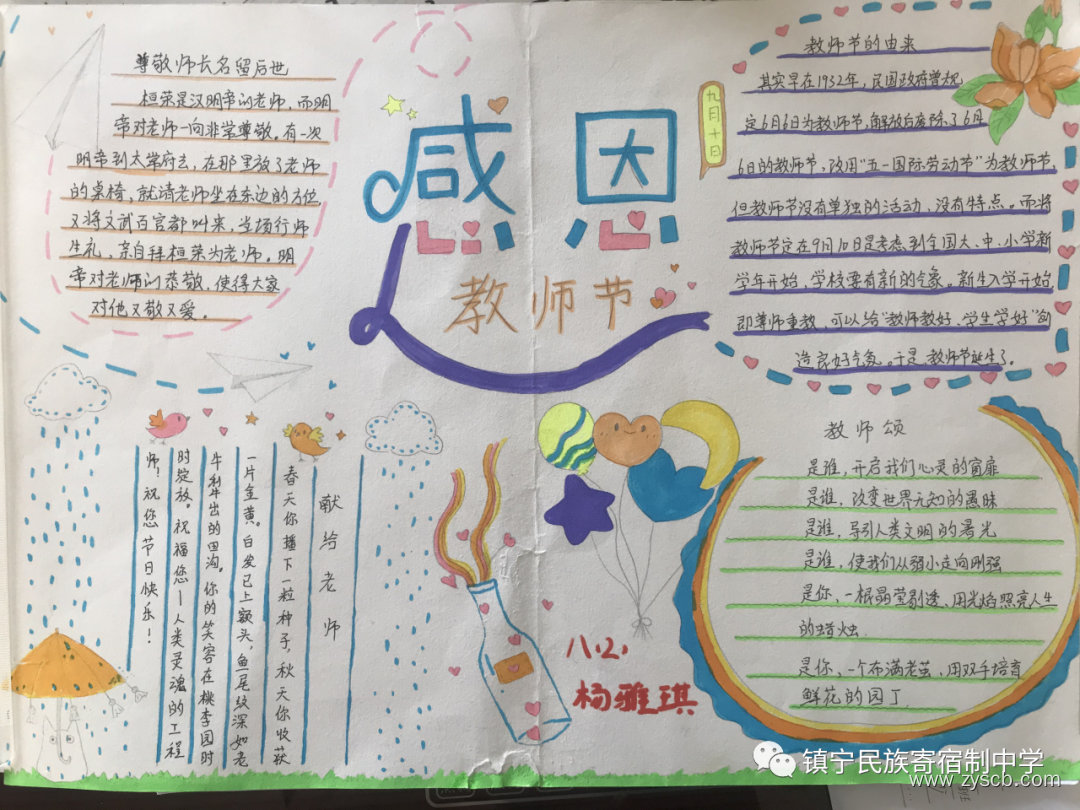 尊敬师长名留后世
桓荣是汉明帝的老师,而明
帝对老师一向非常尊敬。有一次
明帝到太常府去,在那里放了老师
的桌椅,就请老师坐在东边的方位,
又将文武百官都叫来,当场行师
生礼、亲自拜桓荣为老师。明
帝对老师的恭敬,使得大家
对他又敬又爱。
感恩
教师节
九月十日
教师节的由来
其实早在1932年,民国政府曾规
定6月6日为教师节,解放后废除了6月
6日的教师节,改用“五一国际劳动节”为教师节,
但教师节没有单独的活动,没有特点。而将
教师节定在9月10日是考虑到全国大、中、小学新
学年开始,学校要有新的气象。新生入学开始,
即尊师重教,可以给“教师教好、学生学好”创
造良好气象。于是,教师节诞生了。
献给老师
春天你播下一粒种子,秋天你收获
一片金黄。白发已上额头,鱼尾纹深如老
牛犁出的田沟。你的笑容在桃李园时
时绽放。祝福您—人类灵魂的工程
师!祝您节日快乐!
八.(2).
杨雅琪
教师颂
是谁,开启我们心灵的窗扉
是谁,改变世界无知的愚昧
是谁,导引人类文明的曙光
是谁,使我们从弱小走向刚强
是你,一根晶莹剔透、用光焰照亮人生
的蜡烛.
是你,一个布满老茧,用双手培育
鲜花的园丁.
镇宁民族寄宿制中学
www.zyscb.com